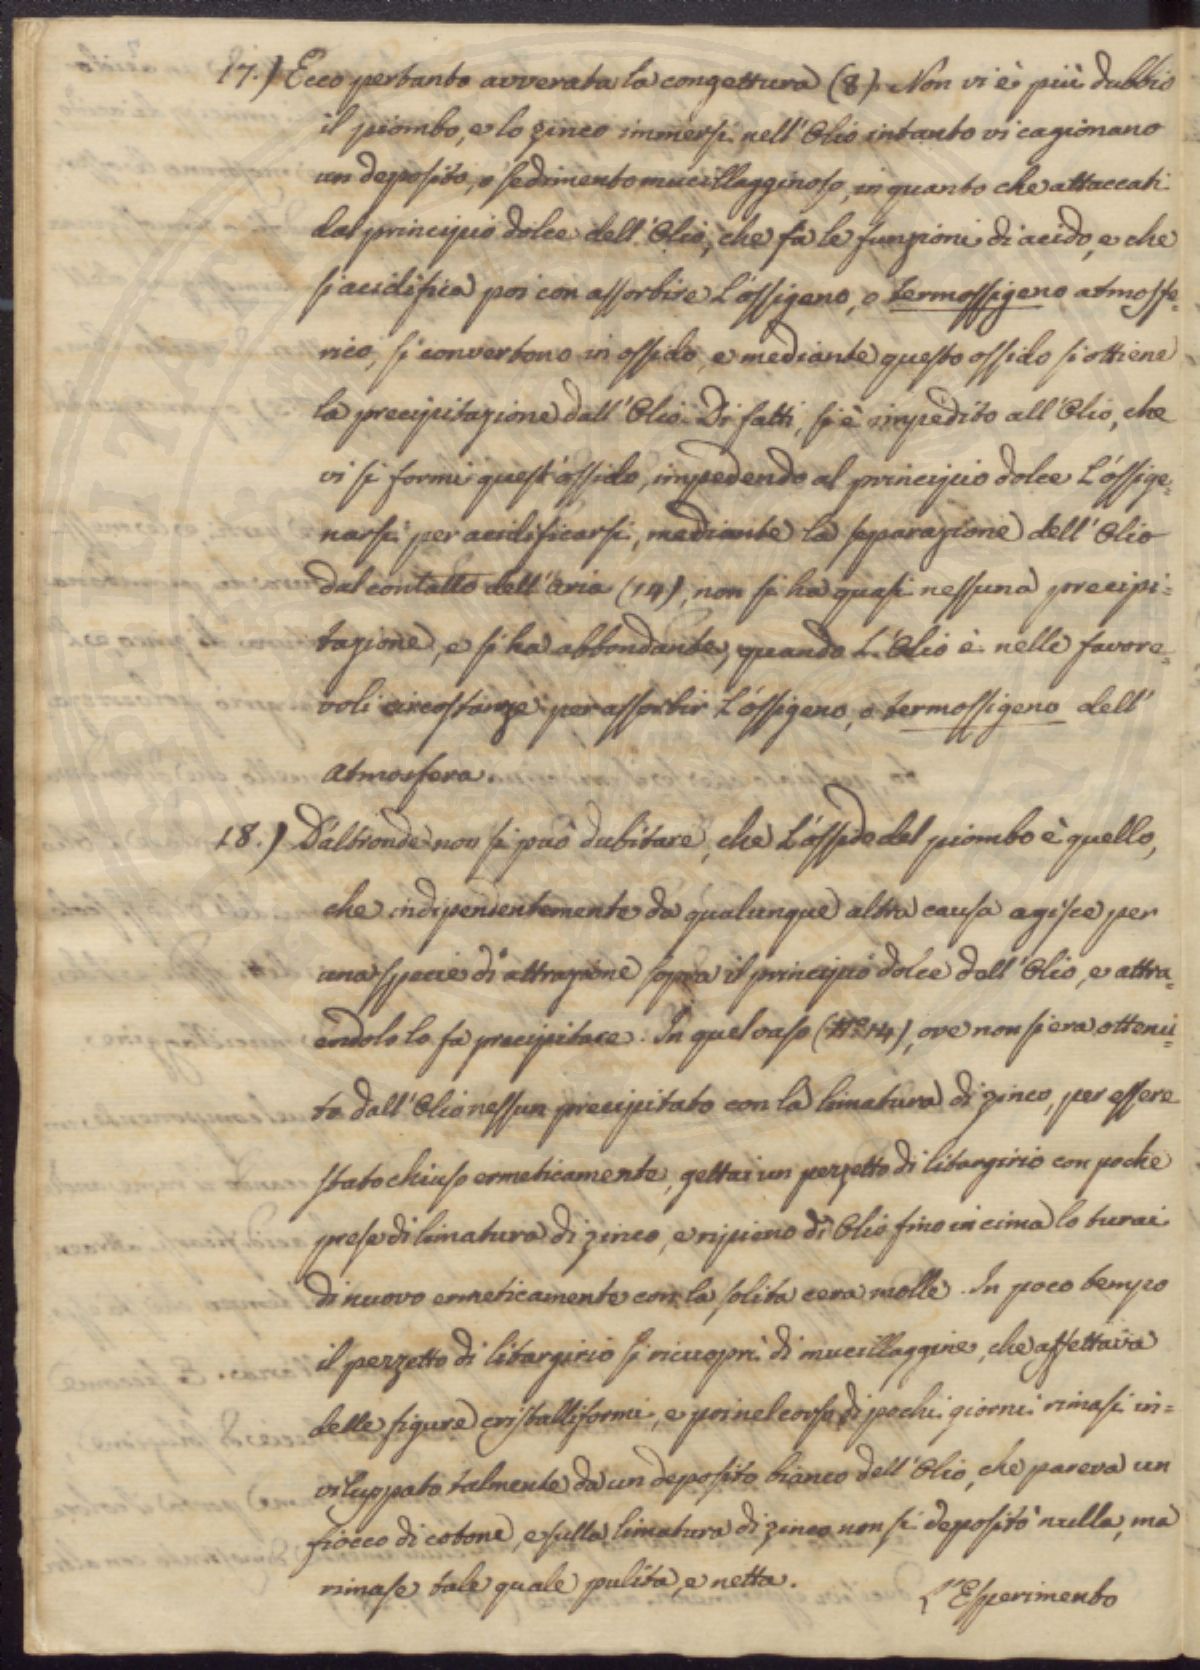 17.) Ecco pertanto avverata la congettura (8). Non vi è più dubbio
il piombo, e lo zinco immersi nell'Olio intanto vi cagionano
un deposito, o sedimento mucillagginoso, in quanto che attaccati
dal principio dolce dell'Olio, che fà le funzioni di acido, e che
si acidifica poi con assorbire L'ossigeno, o termossigeno atmosfe=
rico, si convertono in ossido, e mediante questo ossido si ottiene
la precipitazione dall'Olio. Di fatti, si è impedito all'Olio, che
vi si formi quest'ossido, impedendo al principio dolce L'ossige=
narsi per acidificarsi, mediante la separazione dell'Olio
dal contatto dell'aria (14), non si ha quasi nessuna precipi=
tazione, e si ha abbondante, quando L'Olio è nelle favore=
voli circostanze per assorbir L'ossigeno, o termossigeno dell'
atmosfera.
18.) D'altronde non si può dubitare, che L'ossido del piombo è quello,
che indipendentemente da qualunque altra causa agisce per
una specie di attrazione sopra il principio dolce dell'Olio, e attra=
endolo lo fa precipitare. In quel vaso (N.º 14), ove non si era ottenu=
to dall'Olio nessun precipitato con la limatura di zinco, per essere
stato chiuso ermeticamente, gettai un pezzetto di litargirio con poche
prese di limatura di zinco, e ripieno di Olio fino in cima lo turai
di nuovo ermeticamente con la solita cera molle. In poco tempo
il pezzetto di litargirio si ricuoprì di mucillaggine, che affettava
delle figure cristalliformi, e poi nel corso di pochi giorni rimase in=
viluppato talmente da un deposito bianco dell'Olio, che pareva un
fiocco di cotone, e sulla limatura di zinco non si depositò nulla, ma
rimase tale quale pulita, e netta.
L'Esperimento